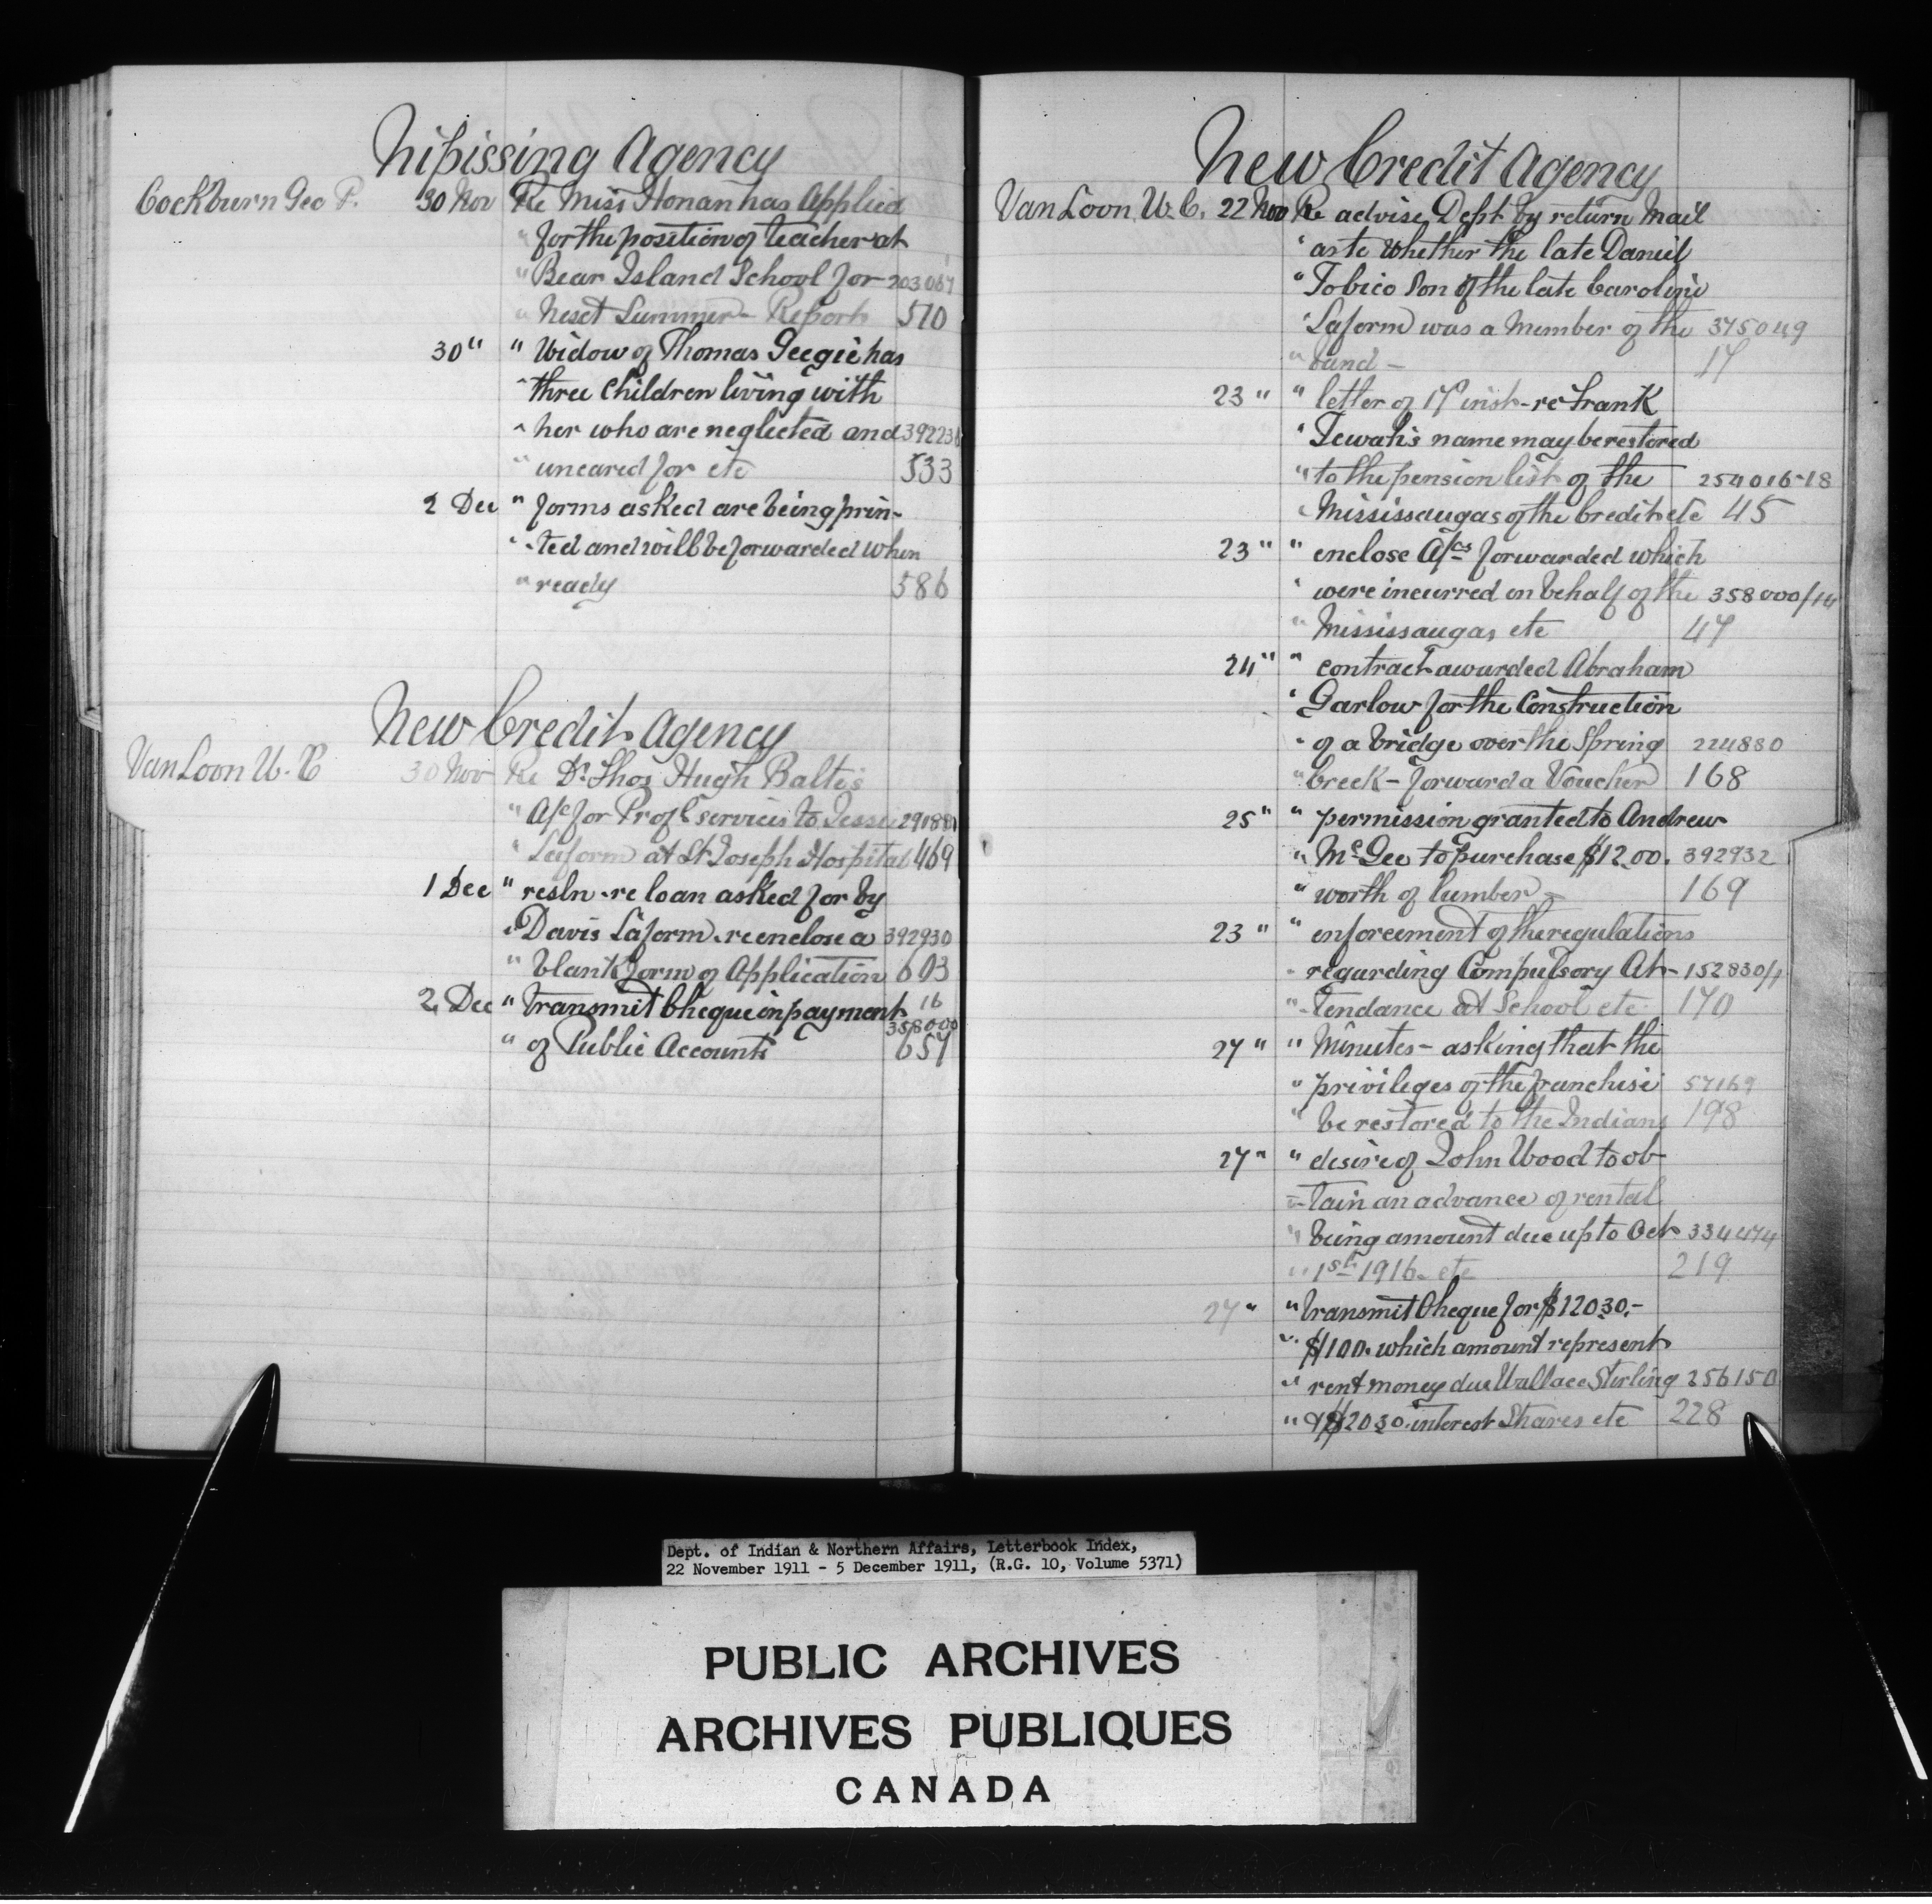 Nipissing Agency
Cockburn Geo P. 30 Nov Re Miss Honan has Applied
" for the position of teacher at
" Bear Island School for 203067
" Next Summer - Report 510
30 " " Widow of Thomas Geegie has
" three Children living with
" her who are neglected and 392236
" uncared for etc 533
2 Dec " forms asked are being prin-
" -ted and will be forwarded when
" ready 586
New Credit Agency
Van Loon W. C 30 Nov Re Dr. Thos Hugh Balte's
" A/c for Prof'l services to Jessie 291881
" Laform at St Joseph Hospital 469
1 Dec " resln. re loan asked for by
" Davis Laform. re enclose a 392930
" blank form of Application 603
2 Dec " transmit Cheque in payment 16
358000
" of Public Accounts 657
New Credit Agency
Van Loon W. C. 22 Nov Re advise Dept by return Mail
" as to whether the late Daniel
" Tobico Son of the late Caroline
" Laform was a Member of the 375049
" band - 17
23 " " letter of 17 inst - re Frank
" Tewah's name may be restored
" to the pension list of the 254016-18
" Mississaugas of the Credit etc 45
23 " " enclose A/cs forwarded which
" were incurred on behalf of the 358000/14
" Mississaugas etc 47
24 " " contract awarded Abraham
" Garlow for the Construction
" of a bridge over the Spring 224880
" Creek - forward a Voucher 168
25 " " permission granted to Andrew
" McGee to purchase $12.00. 392932
" worth of lumber - 169
23 " " enforcement of the regulations
" regarding Compulsory At- 152830/1
" -tendance at School etc 170
27 " " Minutes - asking that the
" privileges of the franchise 57169
" be restored to the Indians 198
27 " " desire of John Wood to ob-
" -tain an advance of rental
" being amount due up to Oct 334474
" 1st 1916. etc 219
27 " " transmit Cheque for $120.30.-
" $100. which amount represent
" rent money due Wallace Sterling 256150
" & $20.30. interest Shares etc 228
Dept. of Indian & Northern Affairs, Letterbook Index,
22 November 1911 - 5 December 1911, (R.G. 10, Volume 5371)
PUBLIC ARCHIVES
ARCHIVES PUBLIQUES
CANADA